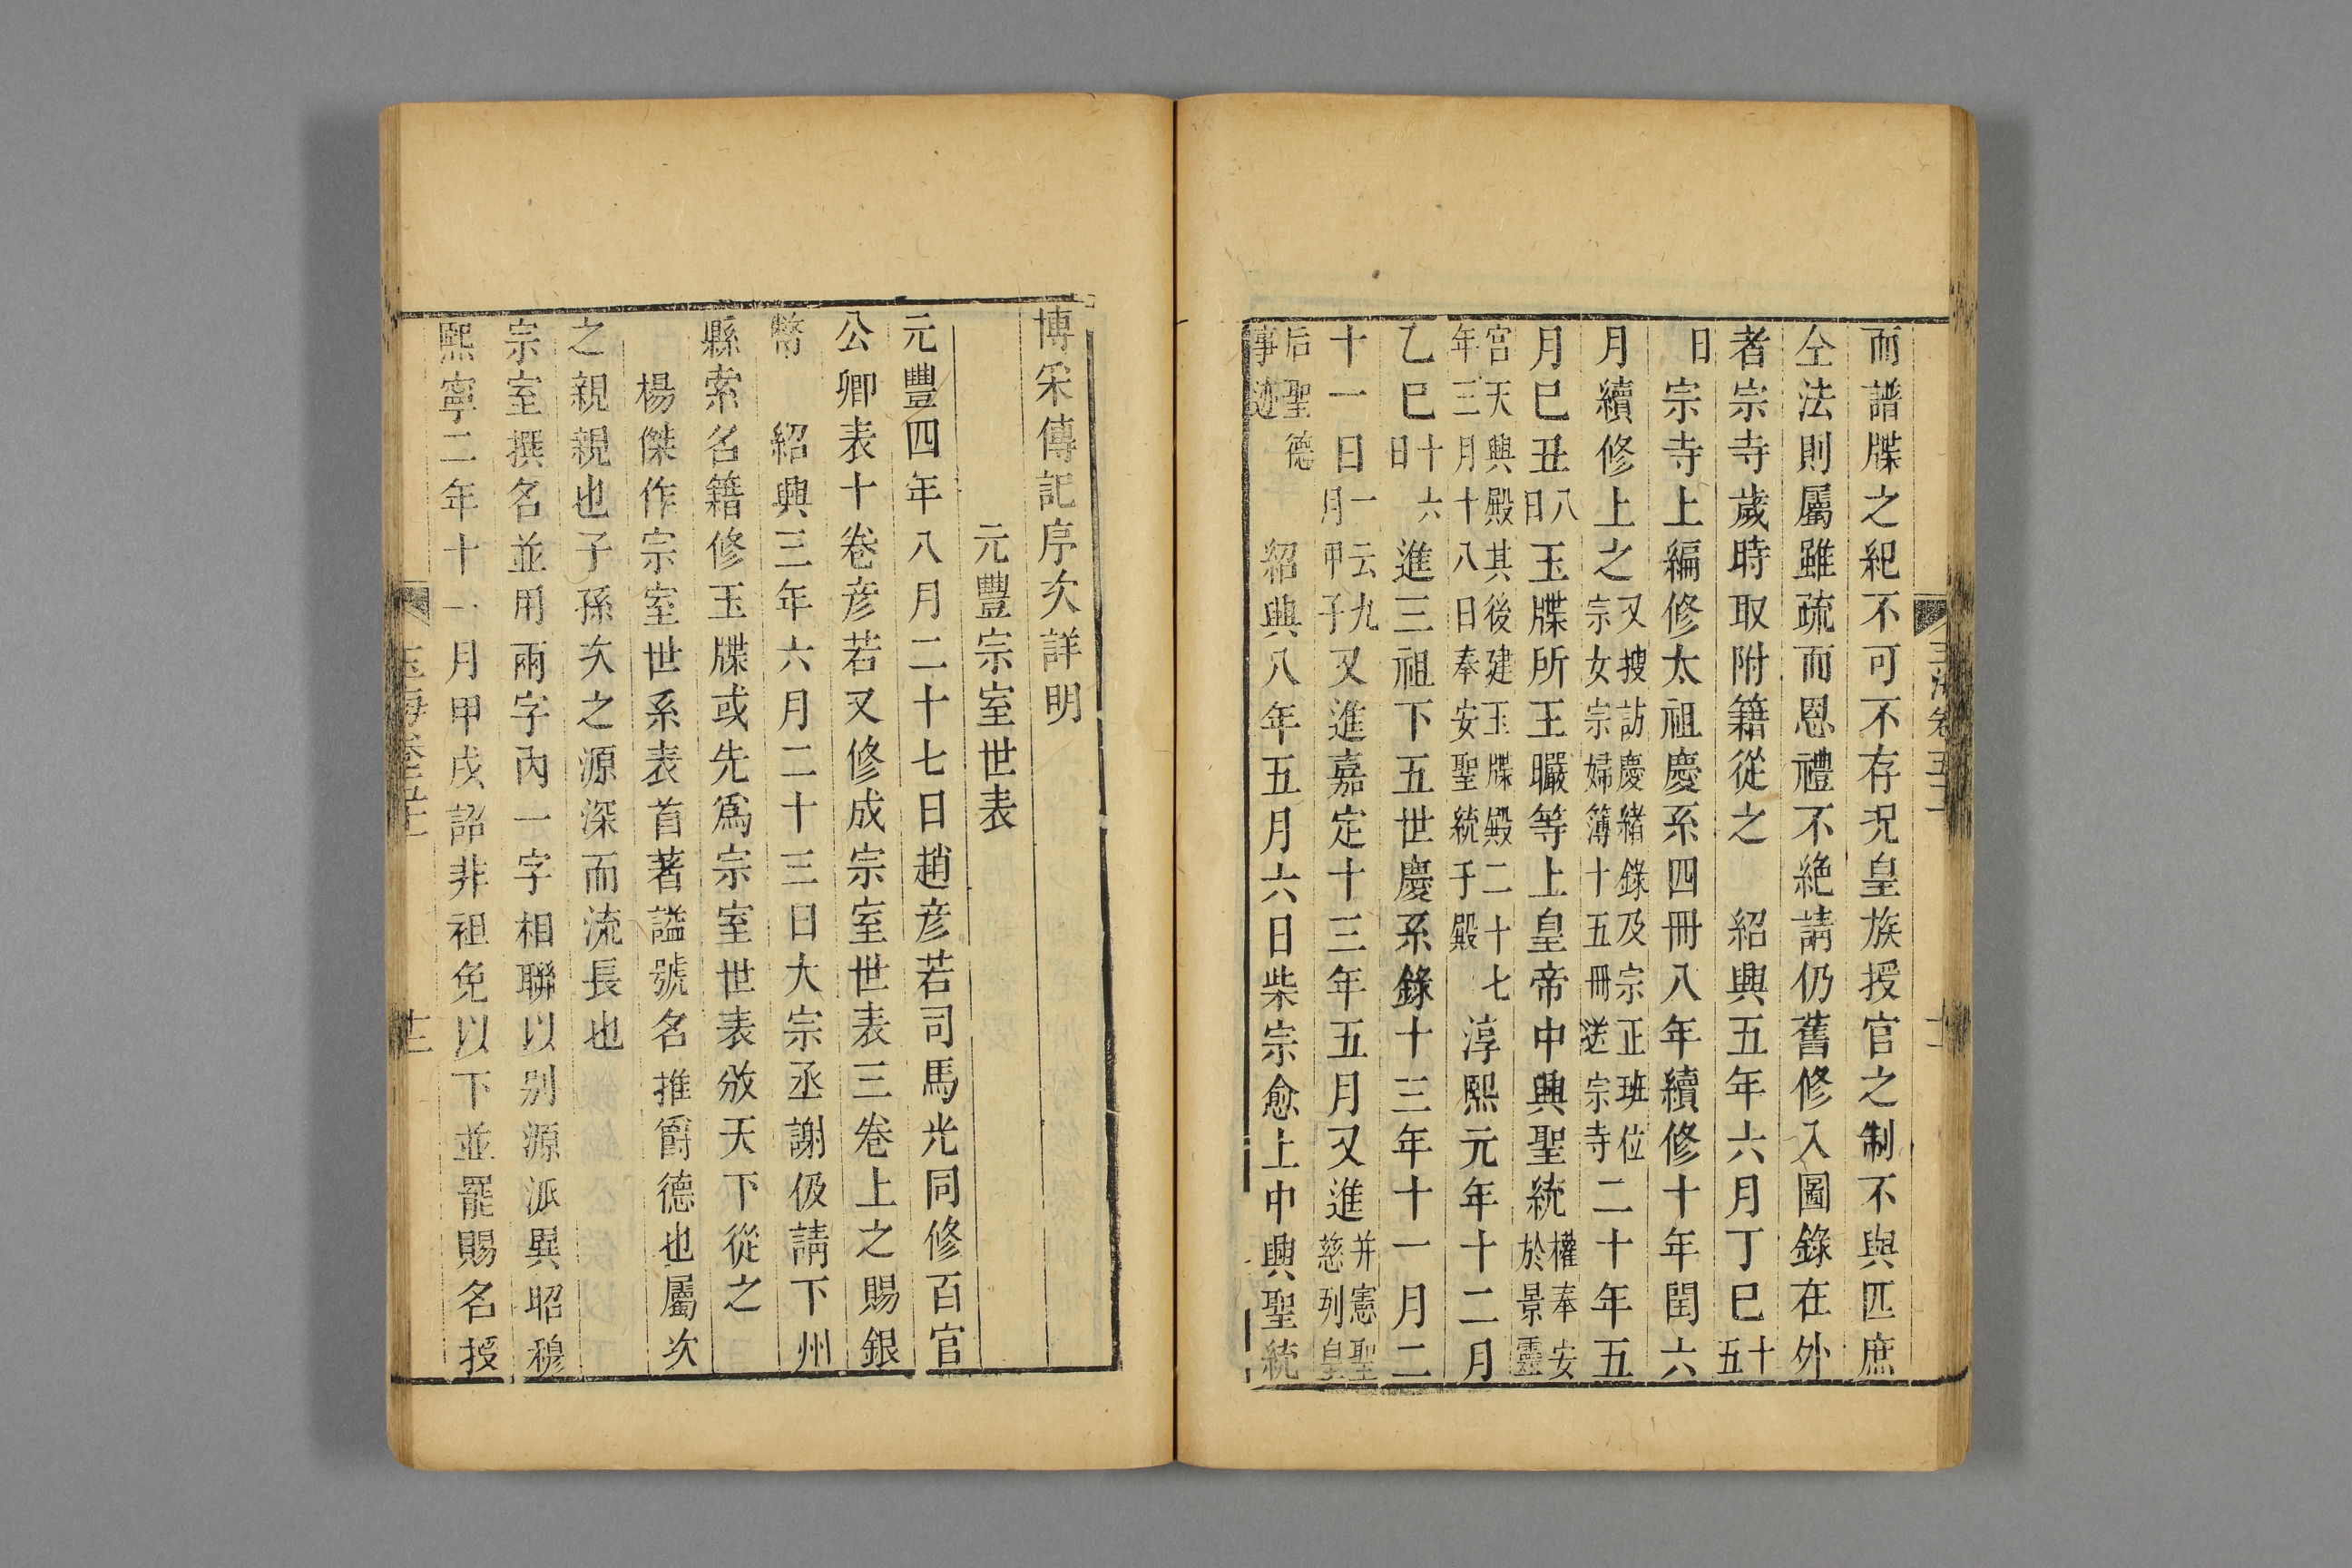 而譜牒之紀不可不存况皇族授官之制不與匹庶
仝法則屬雖疏而恩禮不絶請仍舊修入圖錄在外
者宗寺歲時取附籍從之　紹興五年六月丁巳十五
日宗寺上編修太祖慶系四冊八年續修十年閏六
月續修上之又搜訪慶緒錄及宗正班位宗女宗婦簿十五冊送宗寺二十年五
月巳丑八日玉牒所王曮等上皇帝中興聖統權奉安於景靈
宫天興殿其後建玉牒殿二十七年三月十八日奉安聖統于殿　淳熙元年十二月
乙巳十六日進三祖下五世慶系錄十三年十一月二
十一日一云九月甲子又進嘉定十三年五月又進并憲聖慈列皇
后聖德事迹　紹興八年五月六日柴宗愈上中興聖統
博采傳記序次詳明
元豐宗室世表
元豐四年八月二十七日趙彦若司馬光同修百官
公卿表十卷彦若又修成宗室世表三卷上之賜銀
幣　紹興三年六月二十三日大宗丞謝伋請下州
縣索名籍修玉牒或先爲宗室世表放天下從之
楊傑作宗室世系表首著謚號名推爵德也屬次
之親親也子孫次之源深而流長也
宗室撰名並用兩字內一字相聯以别源派異昭穆
熙寧二年十一月甲戌詔非祖免以下並罷賜名授